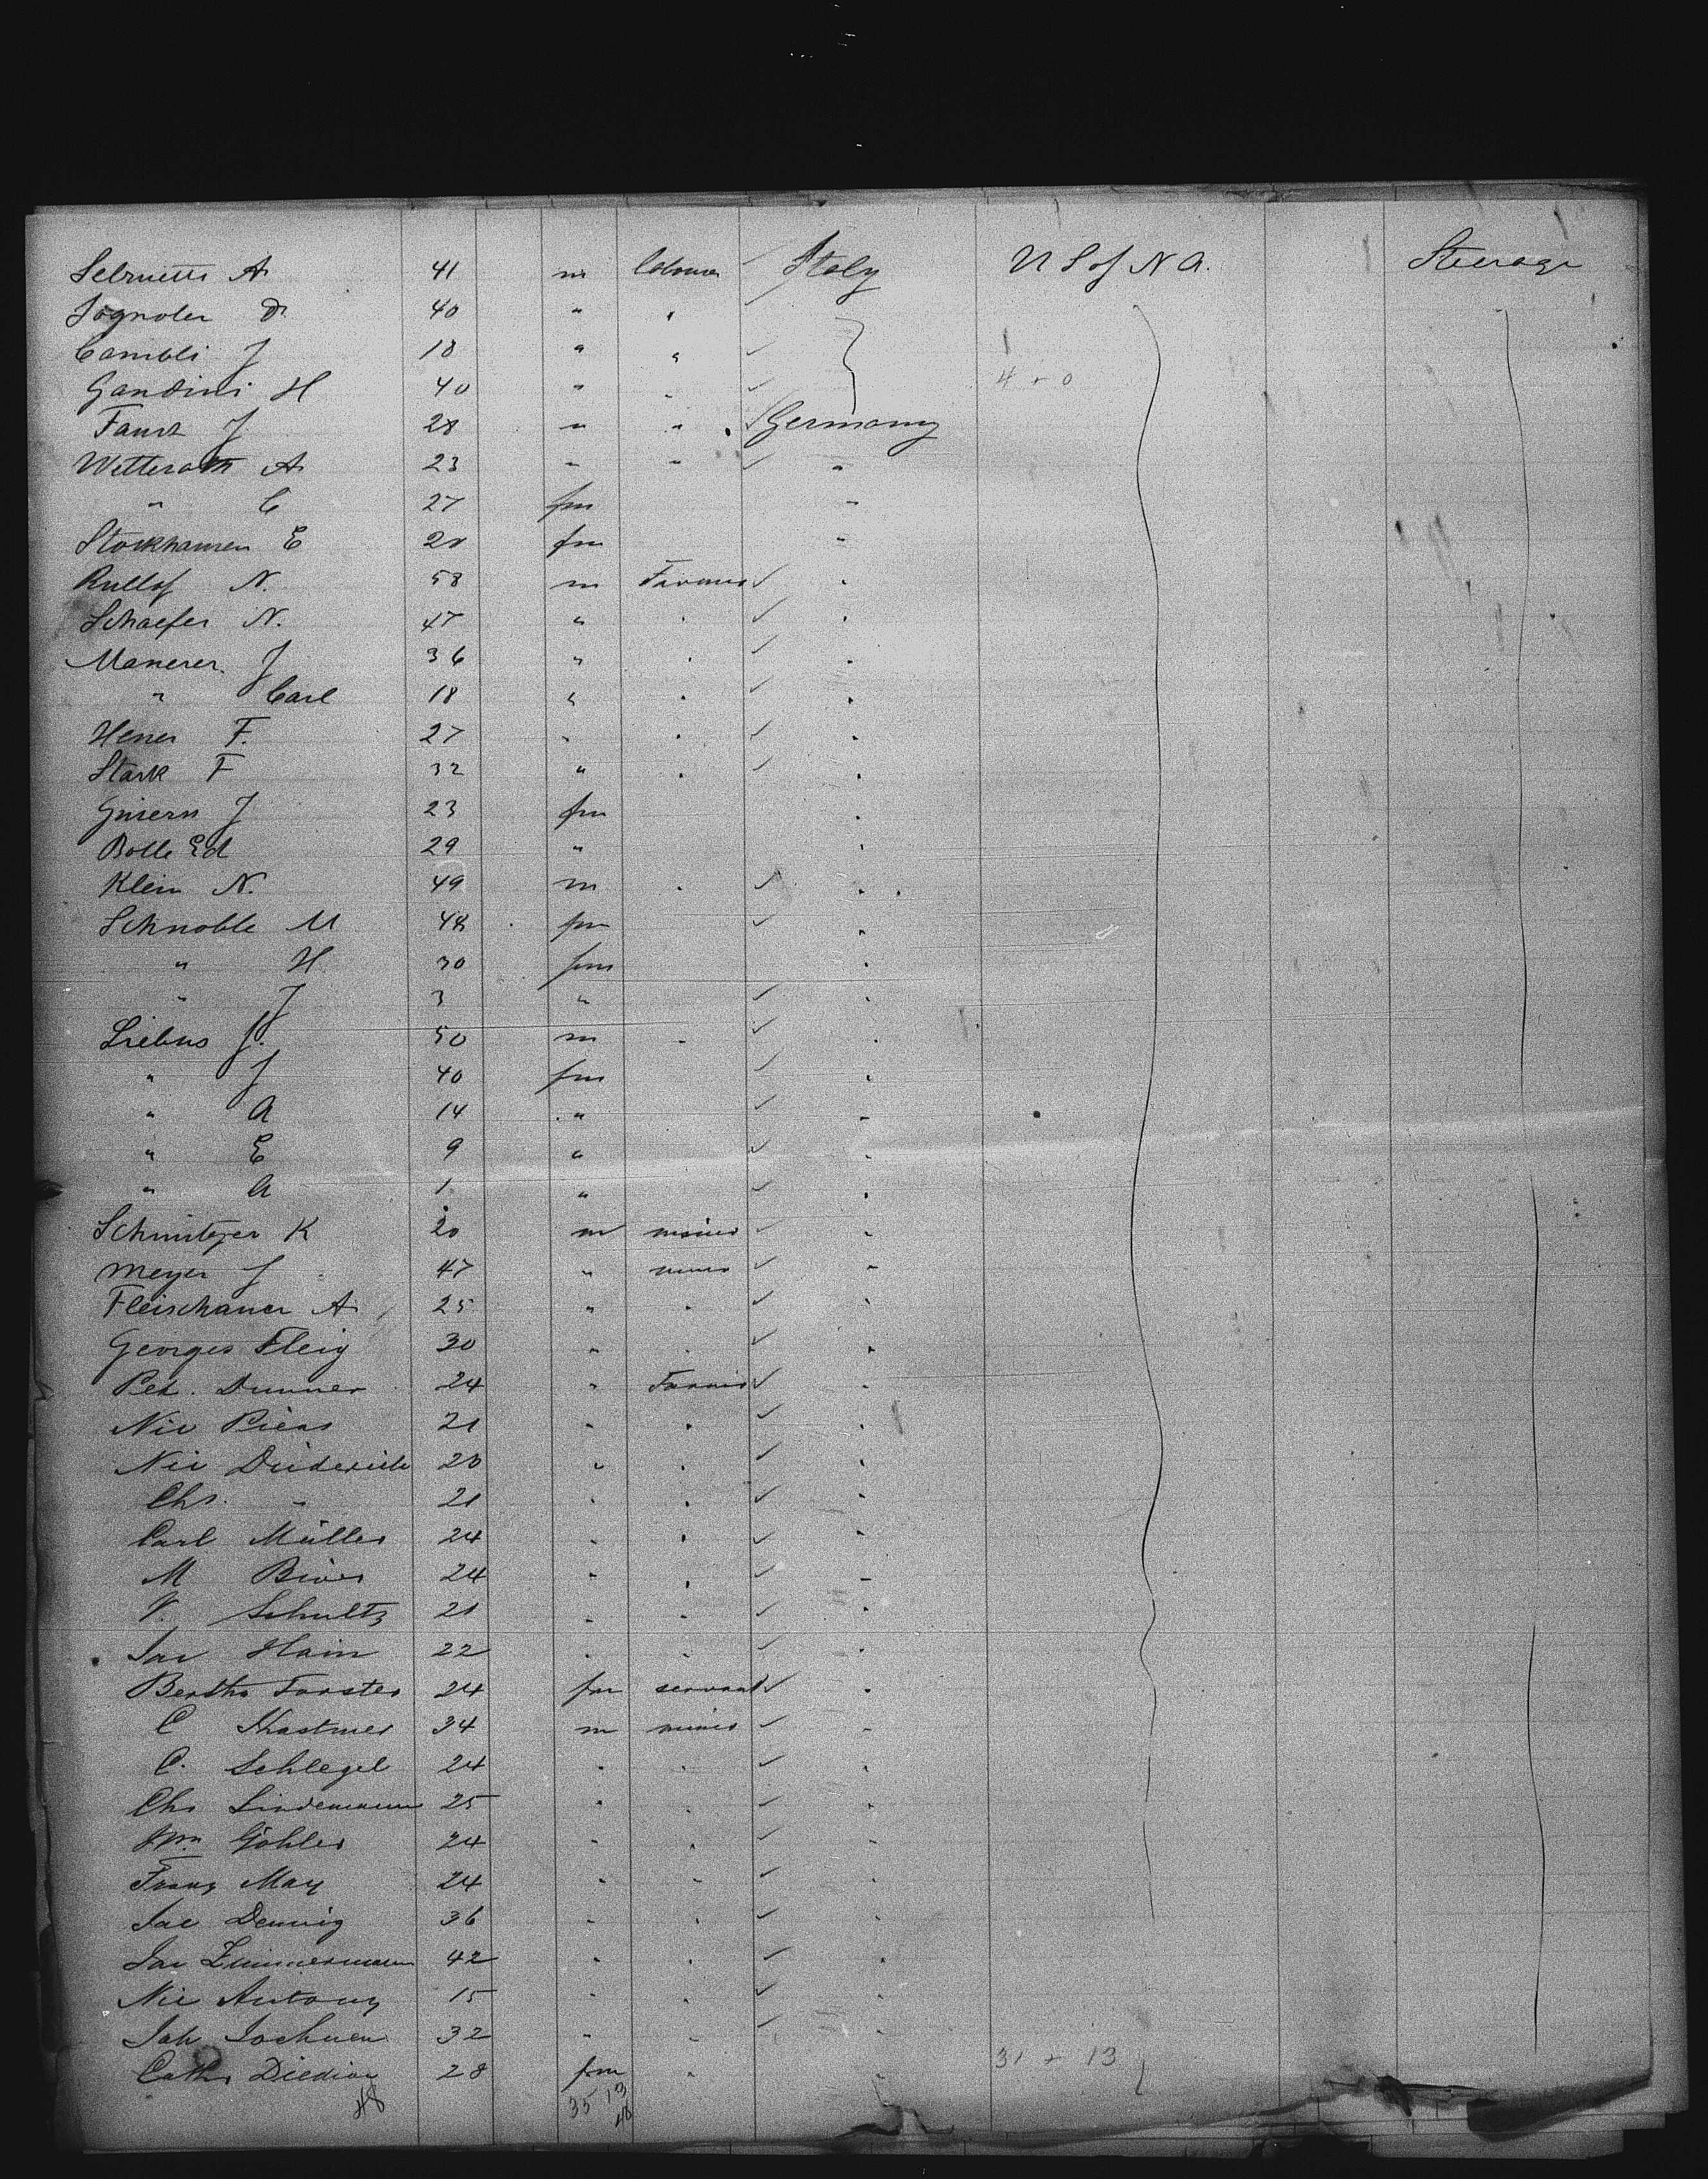 A 41 m Italy U S of N A. Steerage
D. 40 " "
Cambli J 18 " "
Gandini H 40 " "
Faust J 28 " " Germany
Wetterath A 23 " " "
" C 27 fm "
Stockhausen E fm "
Rullof N. 58 m Farmer "
Schaefer N. 47 " " "
Manerer J 36 " " "
" Carl 18 " " "
F. 27 " " "
Stark F 32 " " "
J 23 fm "
Bolle Ed 29 " "
Klein N. 49 m " "
Schnoble M 48 fm "
" H 30 fm "
" J 3 " "
J. 50 m " "
" J 40 fm "
" A 14 " "
" E 9 " "
" A 1 " "
K 20 m miner "
Meyer J 47 " miner "
Fleischauer A 25 " " "
Georges Fleig 30 " " "
Pet. 24 " Farmer "
Nic 21 " " "
Nic Diederich 20 " " "
Chs. " 21 " " "
Carl Müller 24 " " "
M Biver 24 " " "
V. Schultz 21 " " "
Hain 22 " " "
Bertha Forster 24 fm servant "
C 34 m miner "
C. Schlegel 24 " " "
Chs Lindemann 25 " " "
Göhler 24 " " "
Franz May 24 " " "
Jac 36 " " "
Zimmermann 42 " " "
Nic Antony 15 " " "
Joh Jochuem 32 " " "
Cath. 28 fm " " 31 + 13
48 35 13
48